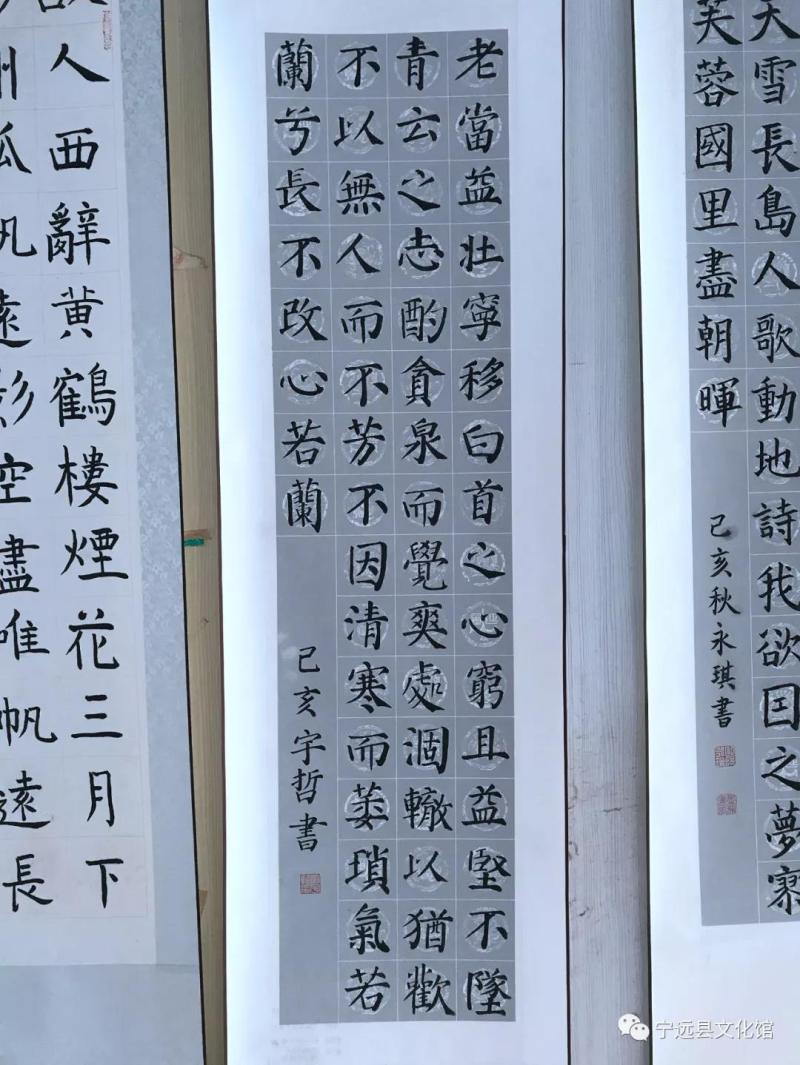 天雪長島人歌動地詩我欲囙之夢寥
芙蓉國里盡朝暉
己亥秋永琪書
老當益壯寧移白首之心窮且益堅不墜
青云之志酌貪泉而覺爽處涸轍以猶歡
不以無人而不芳不因清寒而萎瑣氣若
蘭兮長不改心若蘭
己亥宇哲書
故人西辭黃鶴樓煙花三月下
州孤帆遠影空盡唯帆遠長
宁远县文化馆